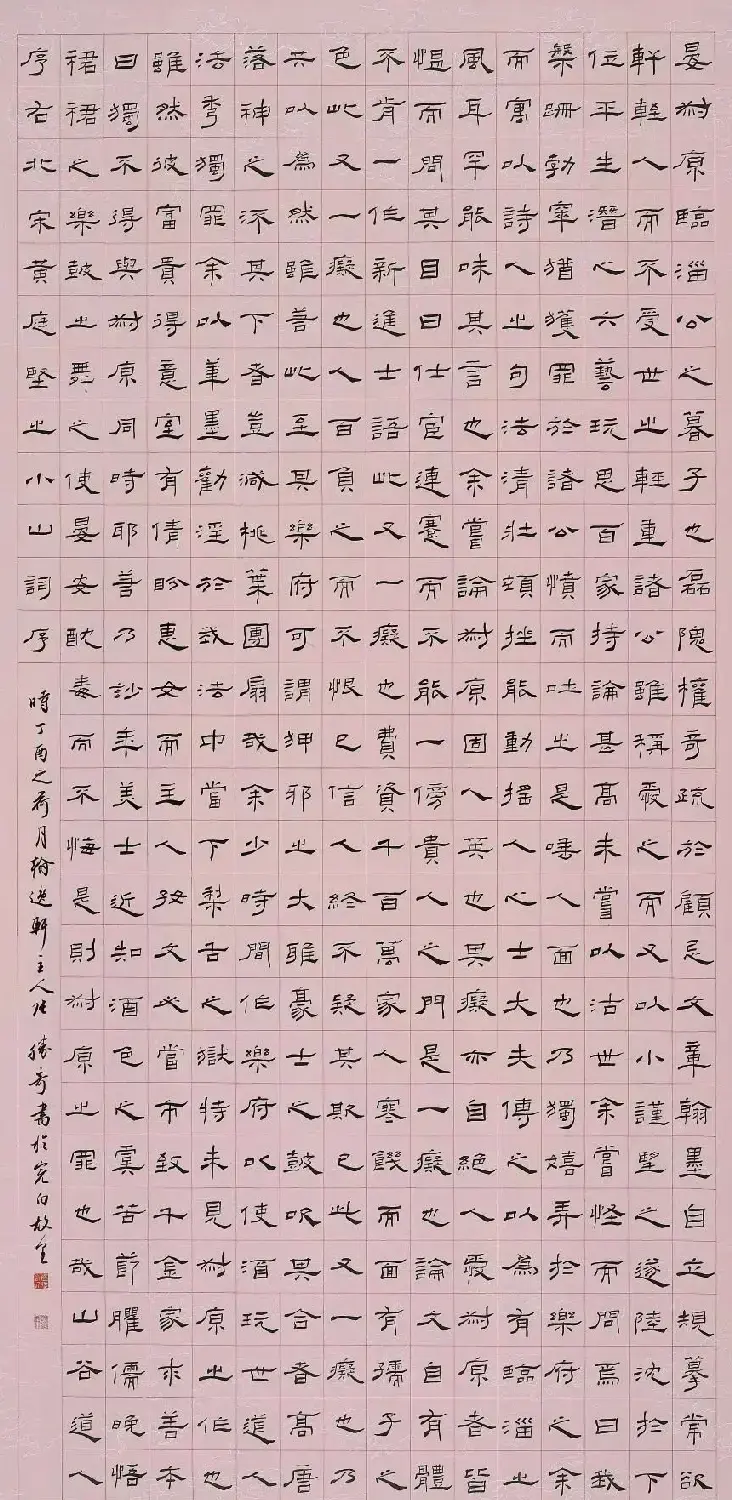 晏叔原臨淄公之暮子也磊隗權奇疏於顧忌文章翰墨自立規摹常欲
軒輊人而不受世之輕重諸公雖稱愛之而又以小謹堅之遂陸沈於下
位平生潛心六藝玩思百家持論甚高未嘗以沽世余嘗怪而問焉曰我
槃跚勃窣猶獲罪於諸公憤而吐之是唾人面也乃獨嬉弄於樂府之余
而寓以詩人之句法清壯頓挫能動搖人心士大夫傳之以為有臨淄之
風耳罕能味其言也余嘗論叔原固人英也其癡亦自絕人愛叔原者皆
愠而問其目曰仕宦連蹇而不能一傍貴人之門是一癡也論文自有體
不肯一作新進士語此又一癡也費資千百萬家人寒饑而面有孺子之
色此又一癡也人百負之而不恨已信人終不疑其欺已此又一癡也乃
共以為然雖若此至其樂府可謂狎邪之大雅豪士之鼓吹其合者高唐
落神之流其下者豈減桃葉團扇哉余少時間作樂府以使酒玩世道人
法秀獨罪余以筆墨勸淫於我法中當下犁舌之獄特未見叔原之作也
雖然彼富貴得意室有倩盼惠女而主人好文必當市致千金家求善本
曰獨不得與叔原同時耶若乃妙年美士近知酒色之虞苦節臞儒晚悟
裙裾之樂鼓之舞之使晏安酖毒而不悔是則叔原之罪也哉山谷道人
序右北宋黃庭堅之小山詞序
時丁酉之荷月翰逸軒主人張勝奇書於宛